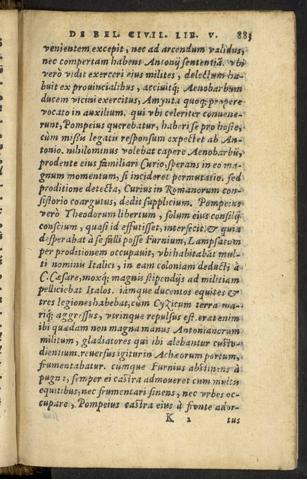 DE BEL. CIVIL. LIB. V. 883
venientem excepit, nec ad arcendum validus,
nec compertam habens Antonij sententiã. vbi
verò vidit exerceri eius milites, delectum ha-
buit ex prouincialibus, acciuitq; Aenobarbum
ducem vicini exercitus, Amynta quoq; propere
vocato in auxilium. qui vbi celeriter conuene-
runt, Pompeius querebatur, haberi se pro hoste,
cùm missu legatū responsum expectet ab An-
tonio. nihilominus volebat capere Aenobarbũ,
prodente eius familiari Curio, sperans in eo ma-
gnum momentum, si incideret permutatio. sed
proditione detecta, Curius in Romanorum con-
sistorio coargutus, dedit supplicium. Pompeius
verò Theodorum libertum, solum eius consilij
conscium, quasi id effutisset, interfecit. & quia
desperabat à se falli posse Furnium, Lampsacum
per proditionem occupauit, vbi habitabãt mul-
ti nominis Italici, in eam coloniam deducti à
C. Cæsare, moxq; magnis stipendijs ad militiam
pelliciebat Italos. iamque ducentos equites &
tres legiones habebat, cùm Cyzicum terra ma-
riq; aggressus, vtrinque repulsus est. erat enim
ibi quædam non magna manus Antonianorum
militum, gladiatores qui ibi alebantur custo-
dientium. reuersus igitur in Achæorum portum,
frumentabatur. cumque Furnius abstinens à
pugna, semper ei castra admoueret cum multis
equitibus, nec frumentari sinens, nec vrbes oc-
cupare, Pompeius castra eius à fronte ador-
K 2 tus